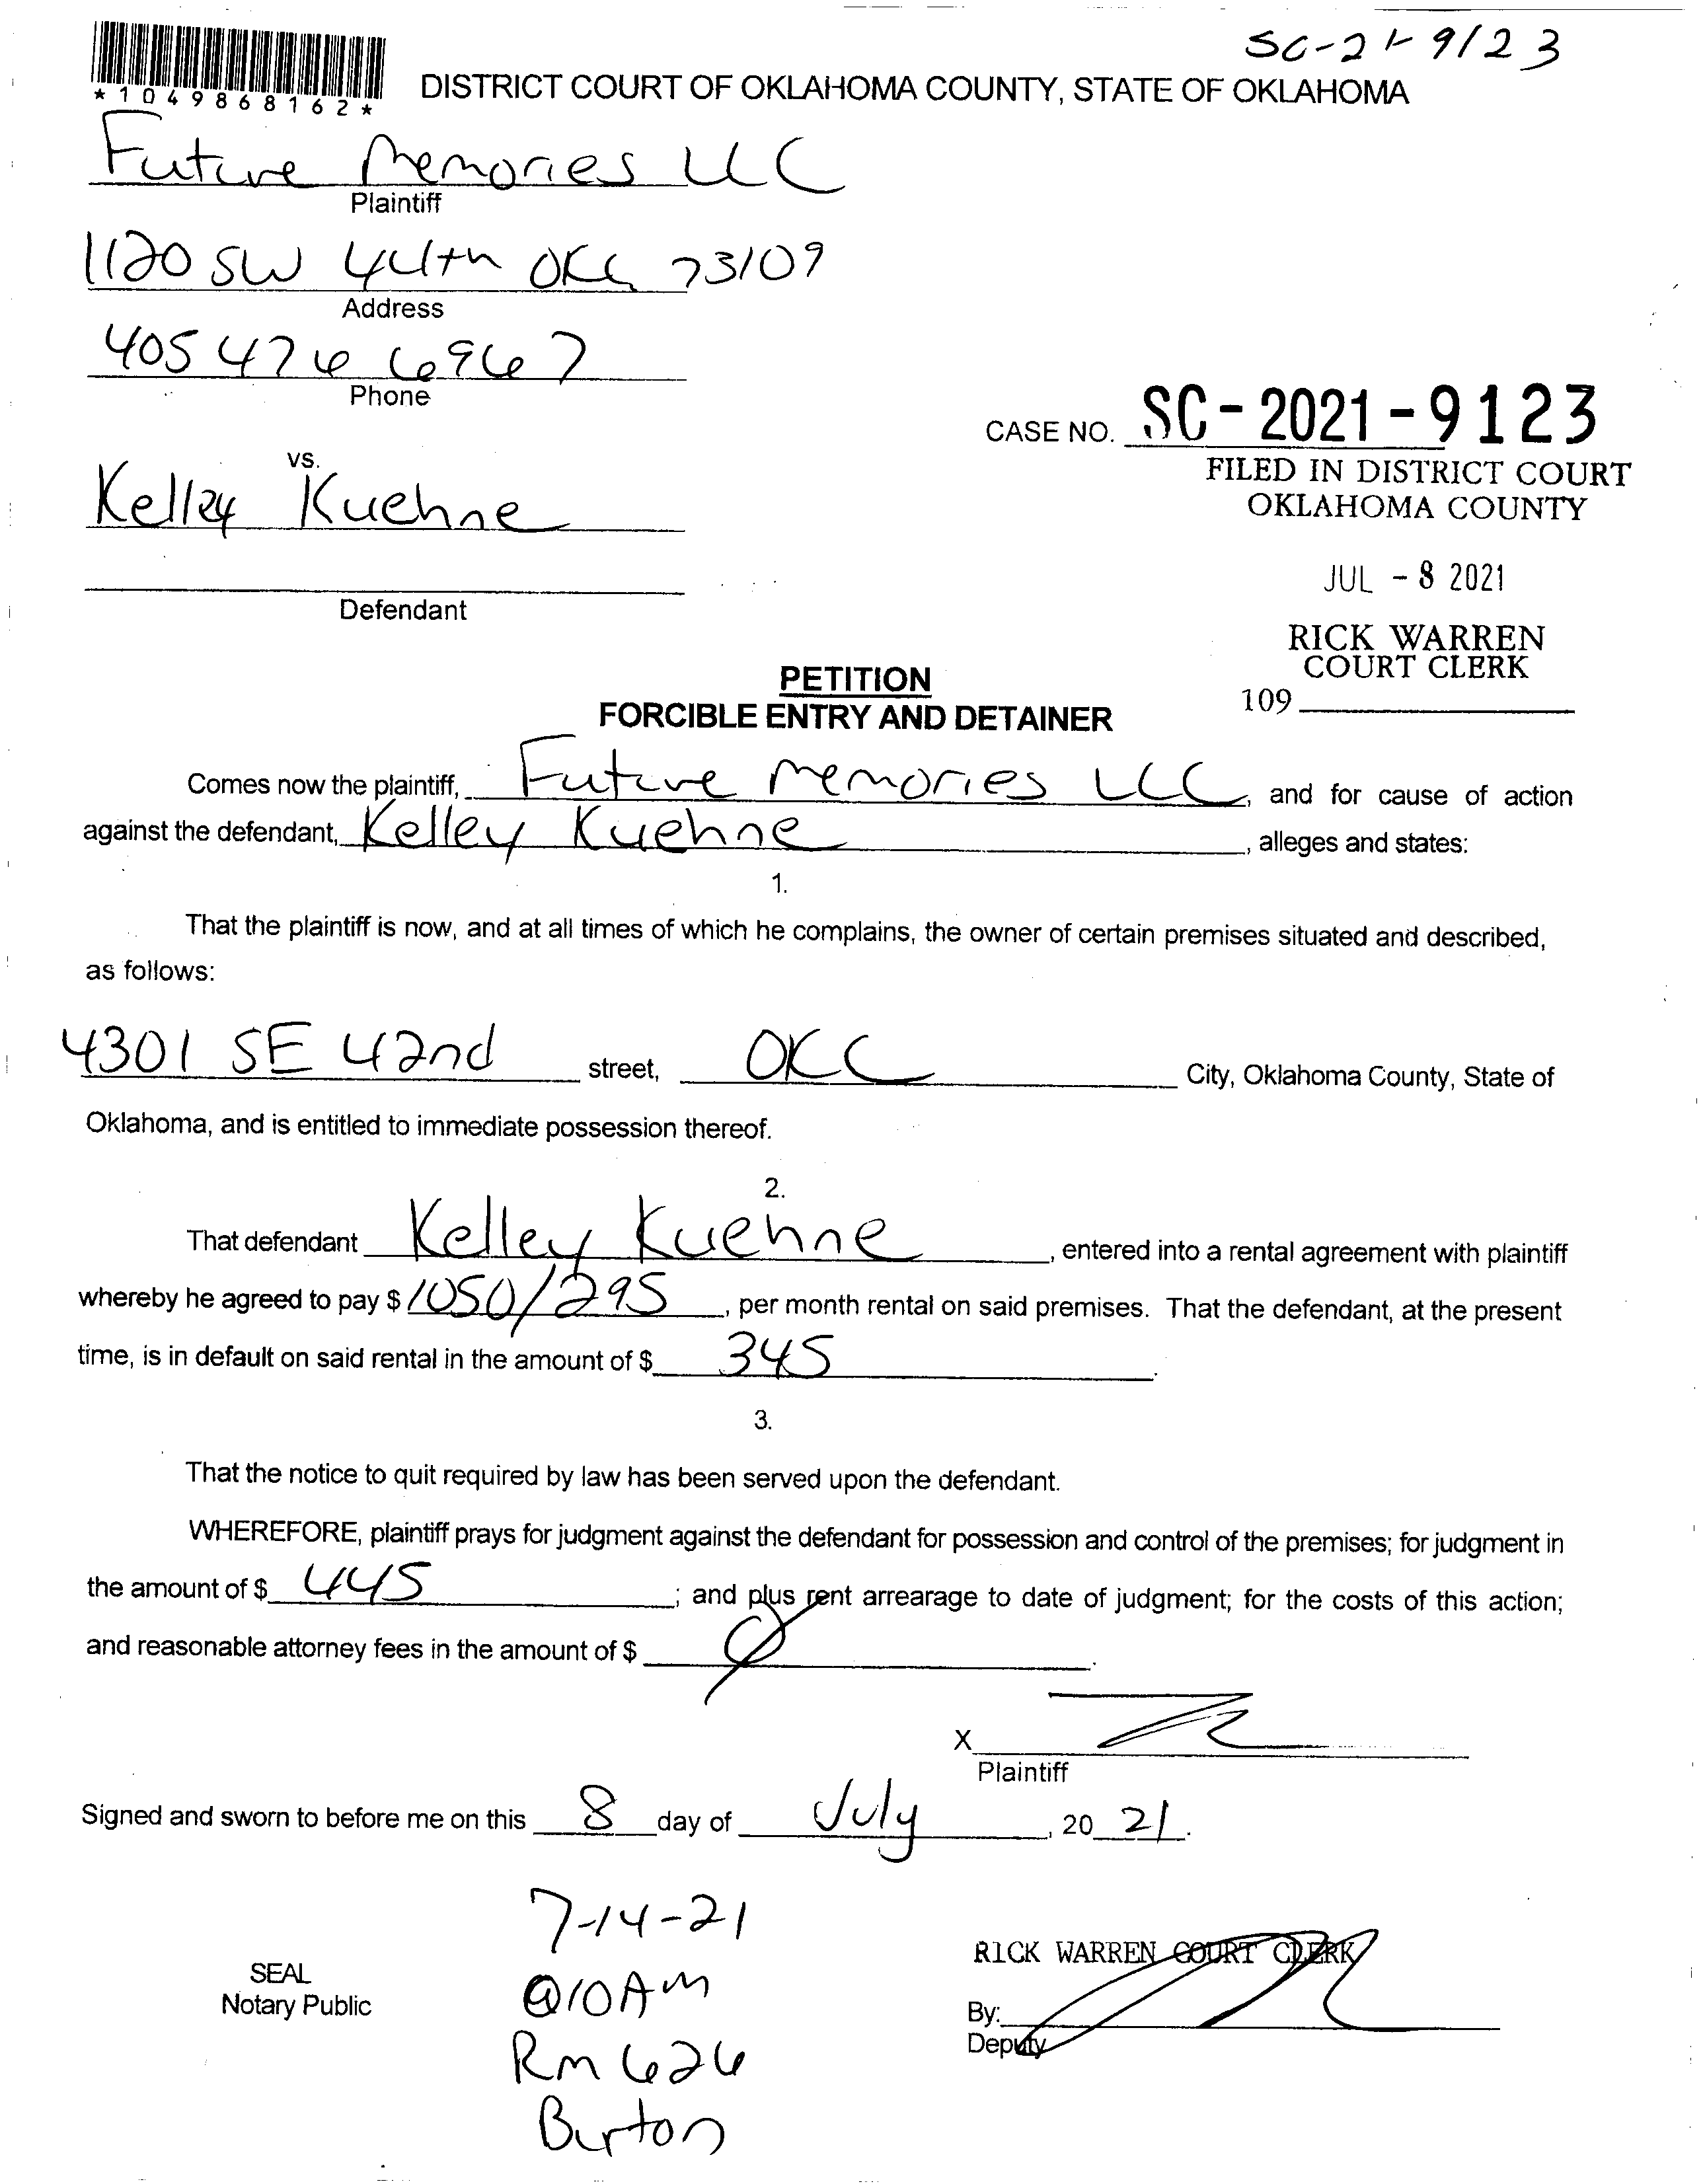 SC-21-9123
*1049868162*
DISTRICT COURT OF OKLAHOMA COUNTY, STATE OF OKLAHOMA
Future Memories LLC
Plaintiff
1120 SW 44th OKC 73109
Address
405 476 6967
Phone
CASE NO. SC-2021-9123
vs.
FILED IN DISTRICT COURT
OKLAHOMA COUNTY
Kelley Kuehne
JUL - 8 2021
Defendant
RICK WARREN
COURT CLERK
109
PETITION
FORCIBLE ENTRY AND DETAINER
Comes now the plaintiff, Future Memories LLC, and for cause of action
against the defendant, Kelley Kuehne, alleges and states:
1.
That the plaintiff is now, and at all times of which he complains, the owner of certain premises situated and described,
as follows:
4301 SE 42nd street, OKC City, Oklahoma County, State of
Oklahoma, and is entitled to immediate possession thereof.
2.
That defendant Kelley Kuehne, entered into a rental agreement with plaintiff
whereby he agreed to pay $ 1050/295, per month rental on said premises. That the defendant, at the present
time, is in default on said rental in the amount of $ 345.
3.
That the notice to quit required by law has been served upon the defendant.
WHEREFORE, plaintiff prays for judgment against the defendant for possession and control of the premises; for judgment in
the amount of $ 445; and plus rent arrearage to date of judgment; for the costs of this action;
and reasonable attorney fees in the amount of $ Ø.
X
Plaintiff
Signed and sworn to before me on this 8 day of July, 20 21.
7-14-21
@10AM
Rm 626
Burton
SEAL
Notary Public
RICK WARREN COURT CLERK
By:
Deputy